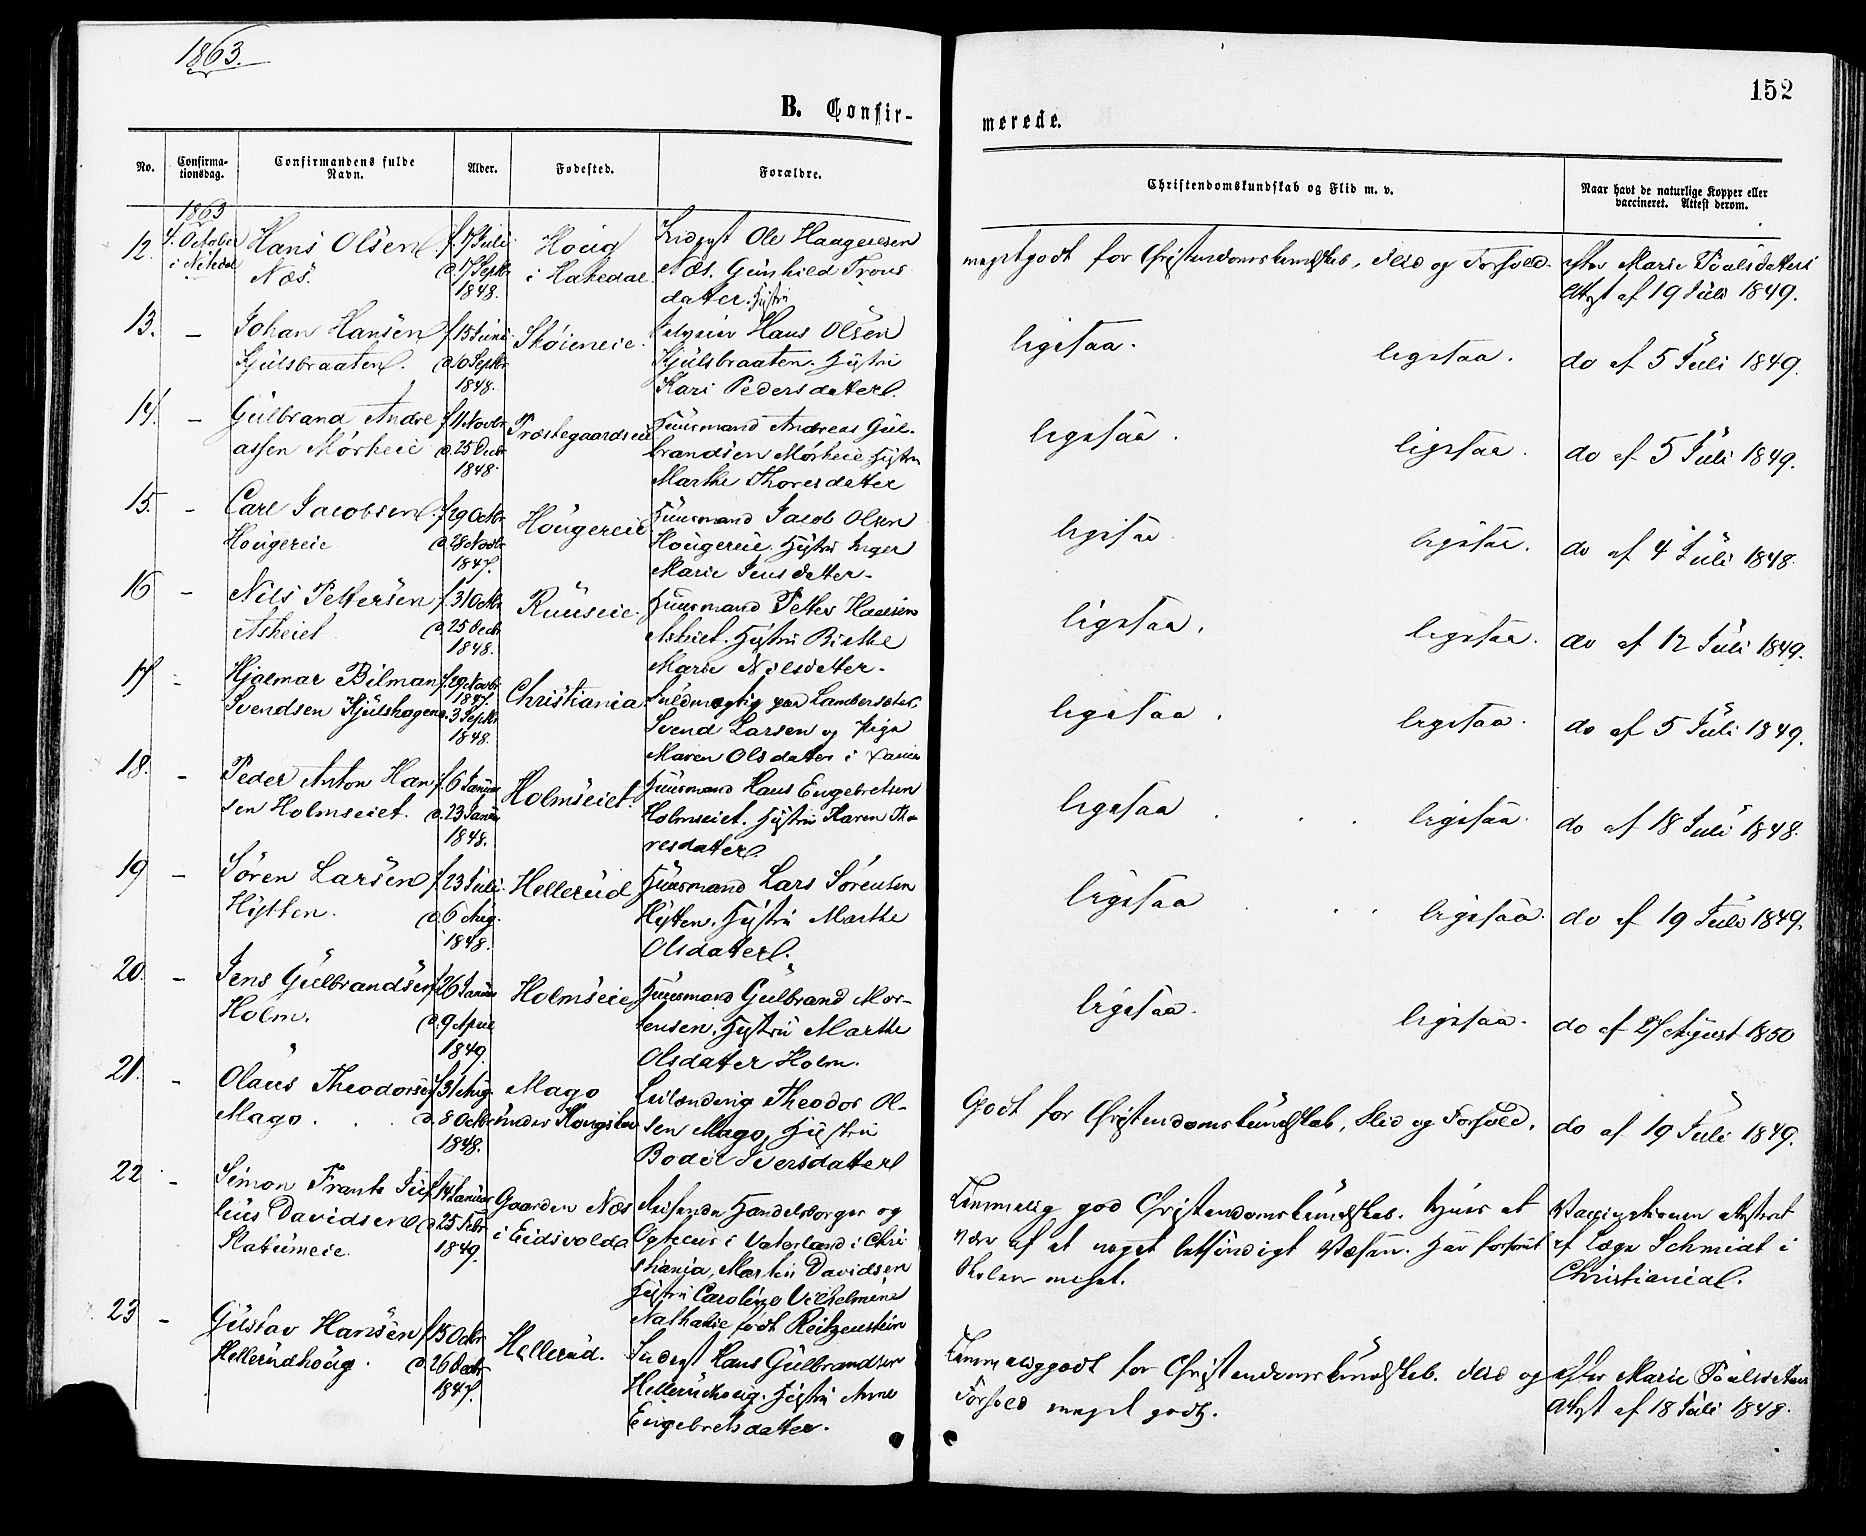 1863.
152
B. Confir-
merede.
No.
Confirma-
tionsdag.
Confirmandens fulde
Navn.
Alder.
Fødested.
Forældre.
Christendomskundskab og Flid m. v.
Naar havt de naturlige Kopper eller
vaccineret. Attest derom.
1863
12. 4. October Hans Olsen f. 17 Juli Houg Ole Haagensen
i Næs. d. 17 Septbr i Hakedal Næs. Gunhild
1848. datter. Hustru
megetgodt for Christendomskundskab, Flid og Forhold. efter Marie Poulsdatters
Attest af 19 Juli 1849.
13. – Johan Hansen f. 15 Juni Skøieneie. Hans Olsen
Kjulsbraaten. d. 10 Septbr Kjulsbraaten. Hustru
1848. Kari Pedersdatter.
ligesaa. ligesaa. do af 5 Juli 1849.
14. – Gulbrand Andre f. 11 Novbr Præstegaardseie Huusmand Andreas Gul-
assen Mørkeie d. 25 Decbr brandsen Mørkeie Hustru
1848. Marthe Thoresdatter
ligesaa. ligesaa. do af 5 Juli 1849.
15. – Carl Jacobsen f. 29 Octbr Hougereie Huusmand Jacob Olsen
Hougereie d. 28 Novbr Hougereie. Hustru Inger
1847. Marie Jensdatter.
ligesaa ligesaa. do af 4 Juli 1848.
16 – Nils Pettersen f. 31 Octbr Ruuseie. Huusmand Petter Hansen
Askeiet d. 25 Decbr Askeiet. Hustru Birthe
1848. Marie Nilsdatter.
ligesaa. ligesaa. do af 12 Juli 1849.
17 – Hjalmar Bilman f. 29 Novbr Christiania Fuldmægtig paa
1847.
Svendsen Kjulshagen d. 3 Septbr Svend Larsen og Pige
1848. Maren Olsdatter i
ligesaa. ligesaa. do af 5 Juli 1849.
18. – Peder Anton Han f. 6 Januar Holmseiet. Huusmand Hans Engebretsen
sen Holmseiet. d. 23 Januar Holmseiet. Hustru Karen Tho
1848. resdatter.
ligesaa ligesaa. do af 18 Juli 1848.
19 – Søren Larsen f. 23 Juli Hellerud Huusmand Lars Sørensen
Hytten. d. 6 Aug. Hytten. Hustru Marthe
1848. Olsdatter.
ligesaa ligesaa. do af 19 Juli 1849.
20. – Jens Gulbrandsen f. 26 Januar Holmseie Huusmand Gulbrand Mor-
Holm. d. 9 April tensen. Hustru Marthe
1849. Olsdatter Holm.
ligesaa. ligesaa. do af 27 August 1850
21. – Olaus Theodorsen f. 31 Aug. Mago Leilænding Theodor Ol-
Mago. d. 8 Octbr under sen Mago, Hustru
1848. Bodil Iversdatter
Godt for Christendomskundskab, Flid og Forhold. do af 19 Juli 1849.
22 – Simon Frants Ju f. 14 Januar Gaarden Næs Handelsborger og
lius Davidsen d. 25 Febr i Eidsvold i Vaterland i Chri
Slatumeie 1849. stiania, Martin Davidsen
Hustru Caroline Vilhelmine
Nathalie født Reitzenstein
Temmelig god Christendomskundskab. Synes at Vaccinationen attesteret
være af et noget letsindigt Væsen. Har forsømt af Læge Schmidt i
Skolen meget. Christiania.
23 – Gustav Hansen f. 15 Octbr Hellerud. Inderst Hans Gulbrandsen
Hellerudhoug. d. 26 Decbr Hellerudhoug. Hustru Anne
1847. Engebretsdatter.
Temmeliggodt for Christendomskundskab. Flid og efter Marie Poulsdatters
Forhold meget godt. Attest af 18 Juli 1848.